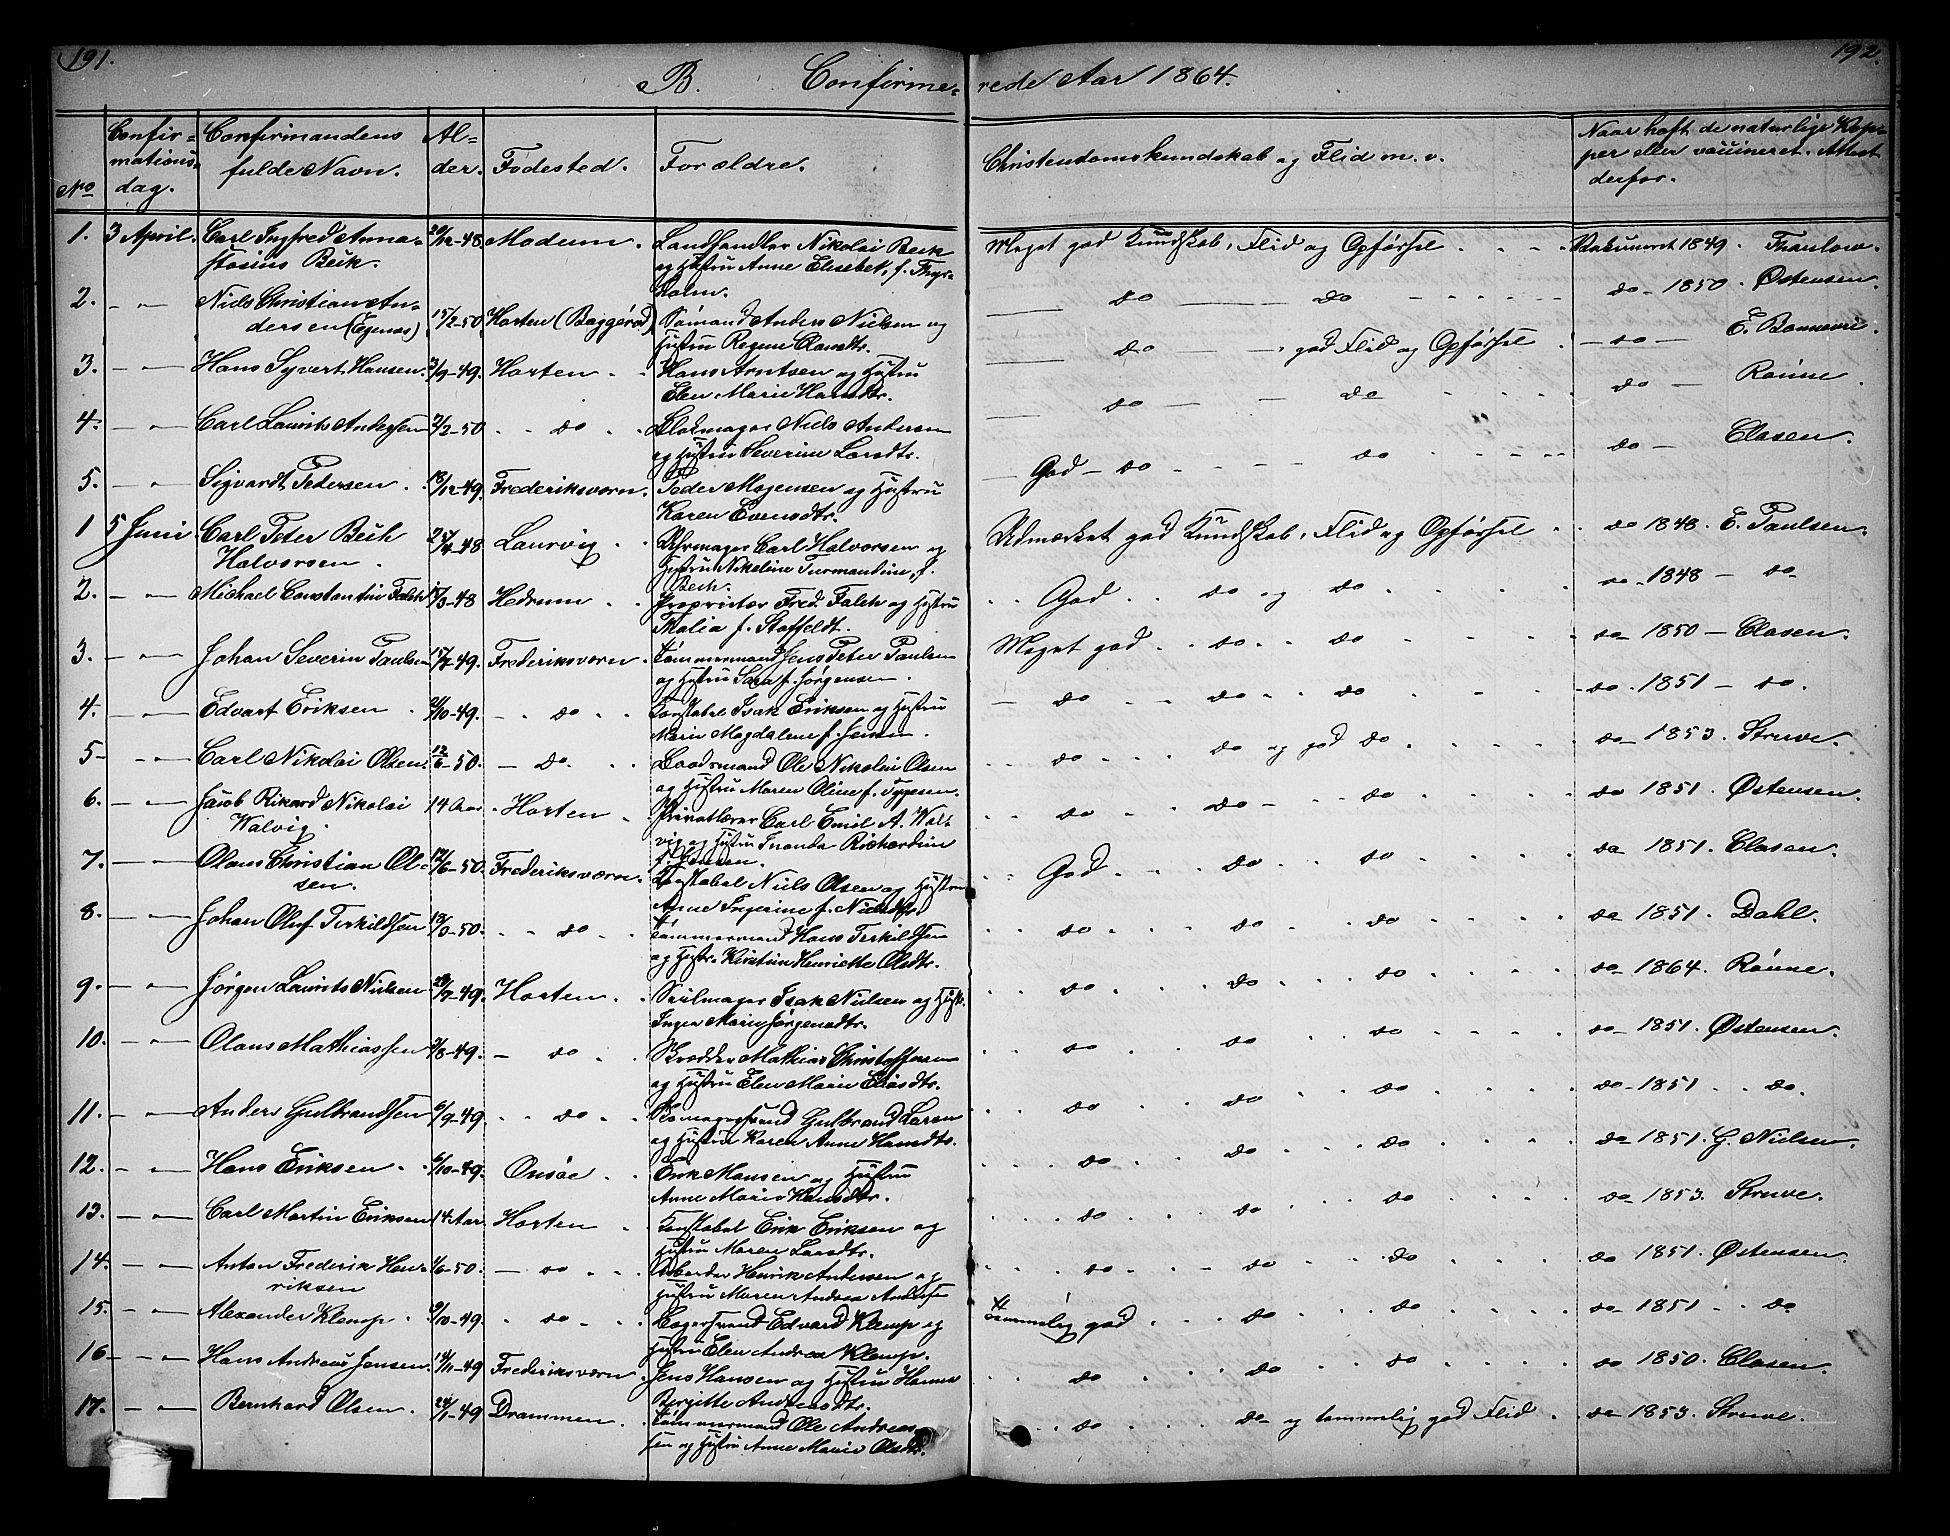 191.
192.
B. Confirme-
rede Aar 1864.
No
Confir-
mations-
dag.
Confirmandens
fulde Navn.
Al-
der.
Fødested.
Forældre.
Christendomskundskab og Flid m. v.
Naar haft de naturlige Kop-
per eller vaccineret. Attest
derfor.
1. 3 April. Carl Ingfred Anna- 20/12-48 Modum. Landhandler Nikolai Beck Meget god Kundskab, Flid og Opførsel Vakcineret 1849. Thaulow.
stasius Beck. og Hustru Anne Elisebet, f.
2. Niels Christian An- do do do 1850. Østensen.
dersen (Egenæs) 15/2-50 Horten (Baggerød) Sømand Anders Nielsen og
Hustru Regine Olausdtr.
3. Hans Syvert Hansen. 3/9-49. Horten. Hans Arntsen og Hustru do god Flid og Opførsel do
Elen Marie Hansdtr.
4. Carl Laurits Andersen 7/2-50 do Blokmager Niels Andersen do do do Rønne.
og Hustru Severine Larsdtr.
5. Sigvardt Pedersen. 18/12-49. Frederiksværn. Peder Mogensen og Hustru God do do do Clasen.
Karen Evensdtr.
1 5 Juni Carl Peter Bech 25/4-48 Laurvig Uhrmager Carl Halvorsen og Udmærket god Kundskab, Flid og Opførsel do 1848. E. Paulsen.
Halvorsen. Hustru Nikoline f.
Bech.
2. Michael Constantin Falch 15/3-48 Hedrum Proprietær Fred. Falch og Hustru God do og do do 1848 do
Thalia f. Staffeldt.
3. Johan Severin Paulsen 17/2-49. Frederiksværn. Tømmermand Jens Peter Paulsen Meget god do do do 1850 Clasen.
og Hustru Sara f. Jørgensen.
4. Edvart Eriksen 2/10-49. do Konstabel Isak Eriksen og Hustru do do do do 1851 do.
Marie Magdalene f. Jensen.
5 Carl Nikolai Olsen. 12/6-50. do. Loadsmand Ole Nikolai Olsen do do og god do do 1853. Struve.
og Hustru Maren Oline f.
6. Jacob Rikard Nikolai 14 Aar Horten Privatlærer Carl Emil A. Wal- do do do do 1851. Østensen.
Walvig. vig og Hustru Richardine
7. Olaus Christian Ol- 12/6-50. Frederiksværn. Konstabel Niels Olsen og Hustru God do do do 1851. Clasen.
sen. Anne Ingerine f. Nielsdtr.
8. Johan Oluf Terkildsen 18/3-50. do Tømmermand Hans Terkildsen do do do do 1851. Dahl.
og Hustr. Kirstine Henriette Olsdtr.
9. Jørgen Laurits Nielsen 29/7-49. Horten. Seilmager Isak Nielsen og Hust. do do do do 1864. Rønne.
Inger Marie Jørgensdtr.
10. Olaus Mathiassen 3/8-49. do Mathias Christoffersen do do do do 1851. Østensen.
og Hustru Elen Marie
11. Anders Gulbrandsen 6/9-49. do Gulbrand Larsen do do do do 1851. do.
og Hustru Karen Anne Hansdtr.
12. Hans Eriksen. 6/10-49. Onsøe Erik Hansen og Hustru do do do do 1851. G. Nielsen.
Anne Marie Hansdtr.
13. Carl Martin Eriksen 14 Aar. Horten Konstabel Erik Eriksen og do do do do 1853. Struve.
Hustru Maren Larsdtr.
14. Anton Frederik Hen- 1/6-50. do Arbeider Henrik Andersen og do do do do 1851. Østensen
riksen Hustru Maren Andrea
15. Alexander Klemp. 9/10-49. do Edvard Klemp og Temmelig god do do do 1851 do
Hustru Elen Andrea Klemp.
16 Hans Andreas Jensen. 14/11-49 Frederiksværn. Jens Hansen og Hustru Hanne do do do do 1850. Clasen.
Birgitte Andersdtr.
17. Bernhard Olsen. 24/1-49 Drammen. Tømmermand Ole Andreas- do do og temmelig god Flid do 1853. Struve.
sen og Hustru Anne Marie Olsdtr.